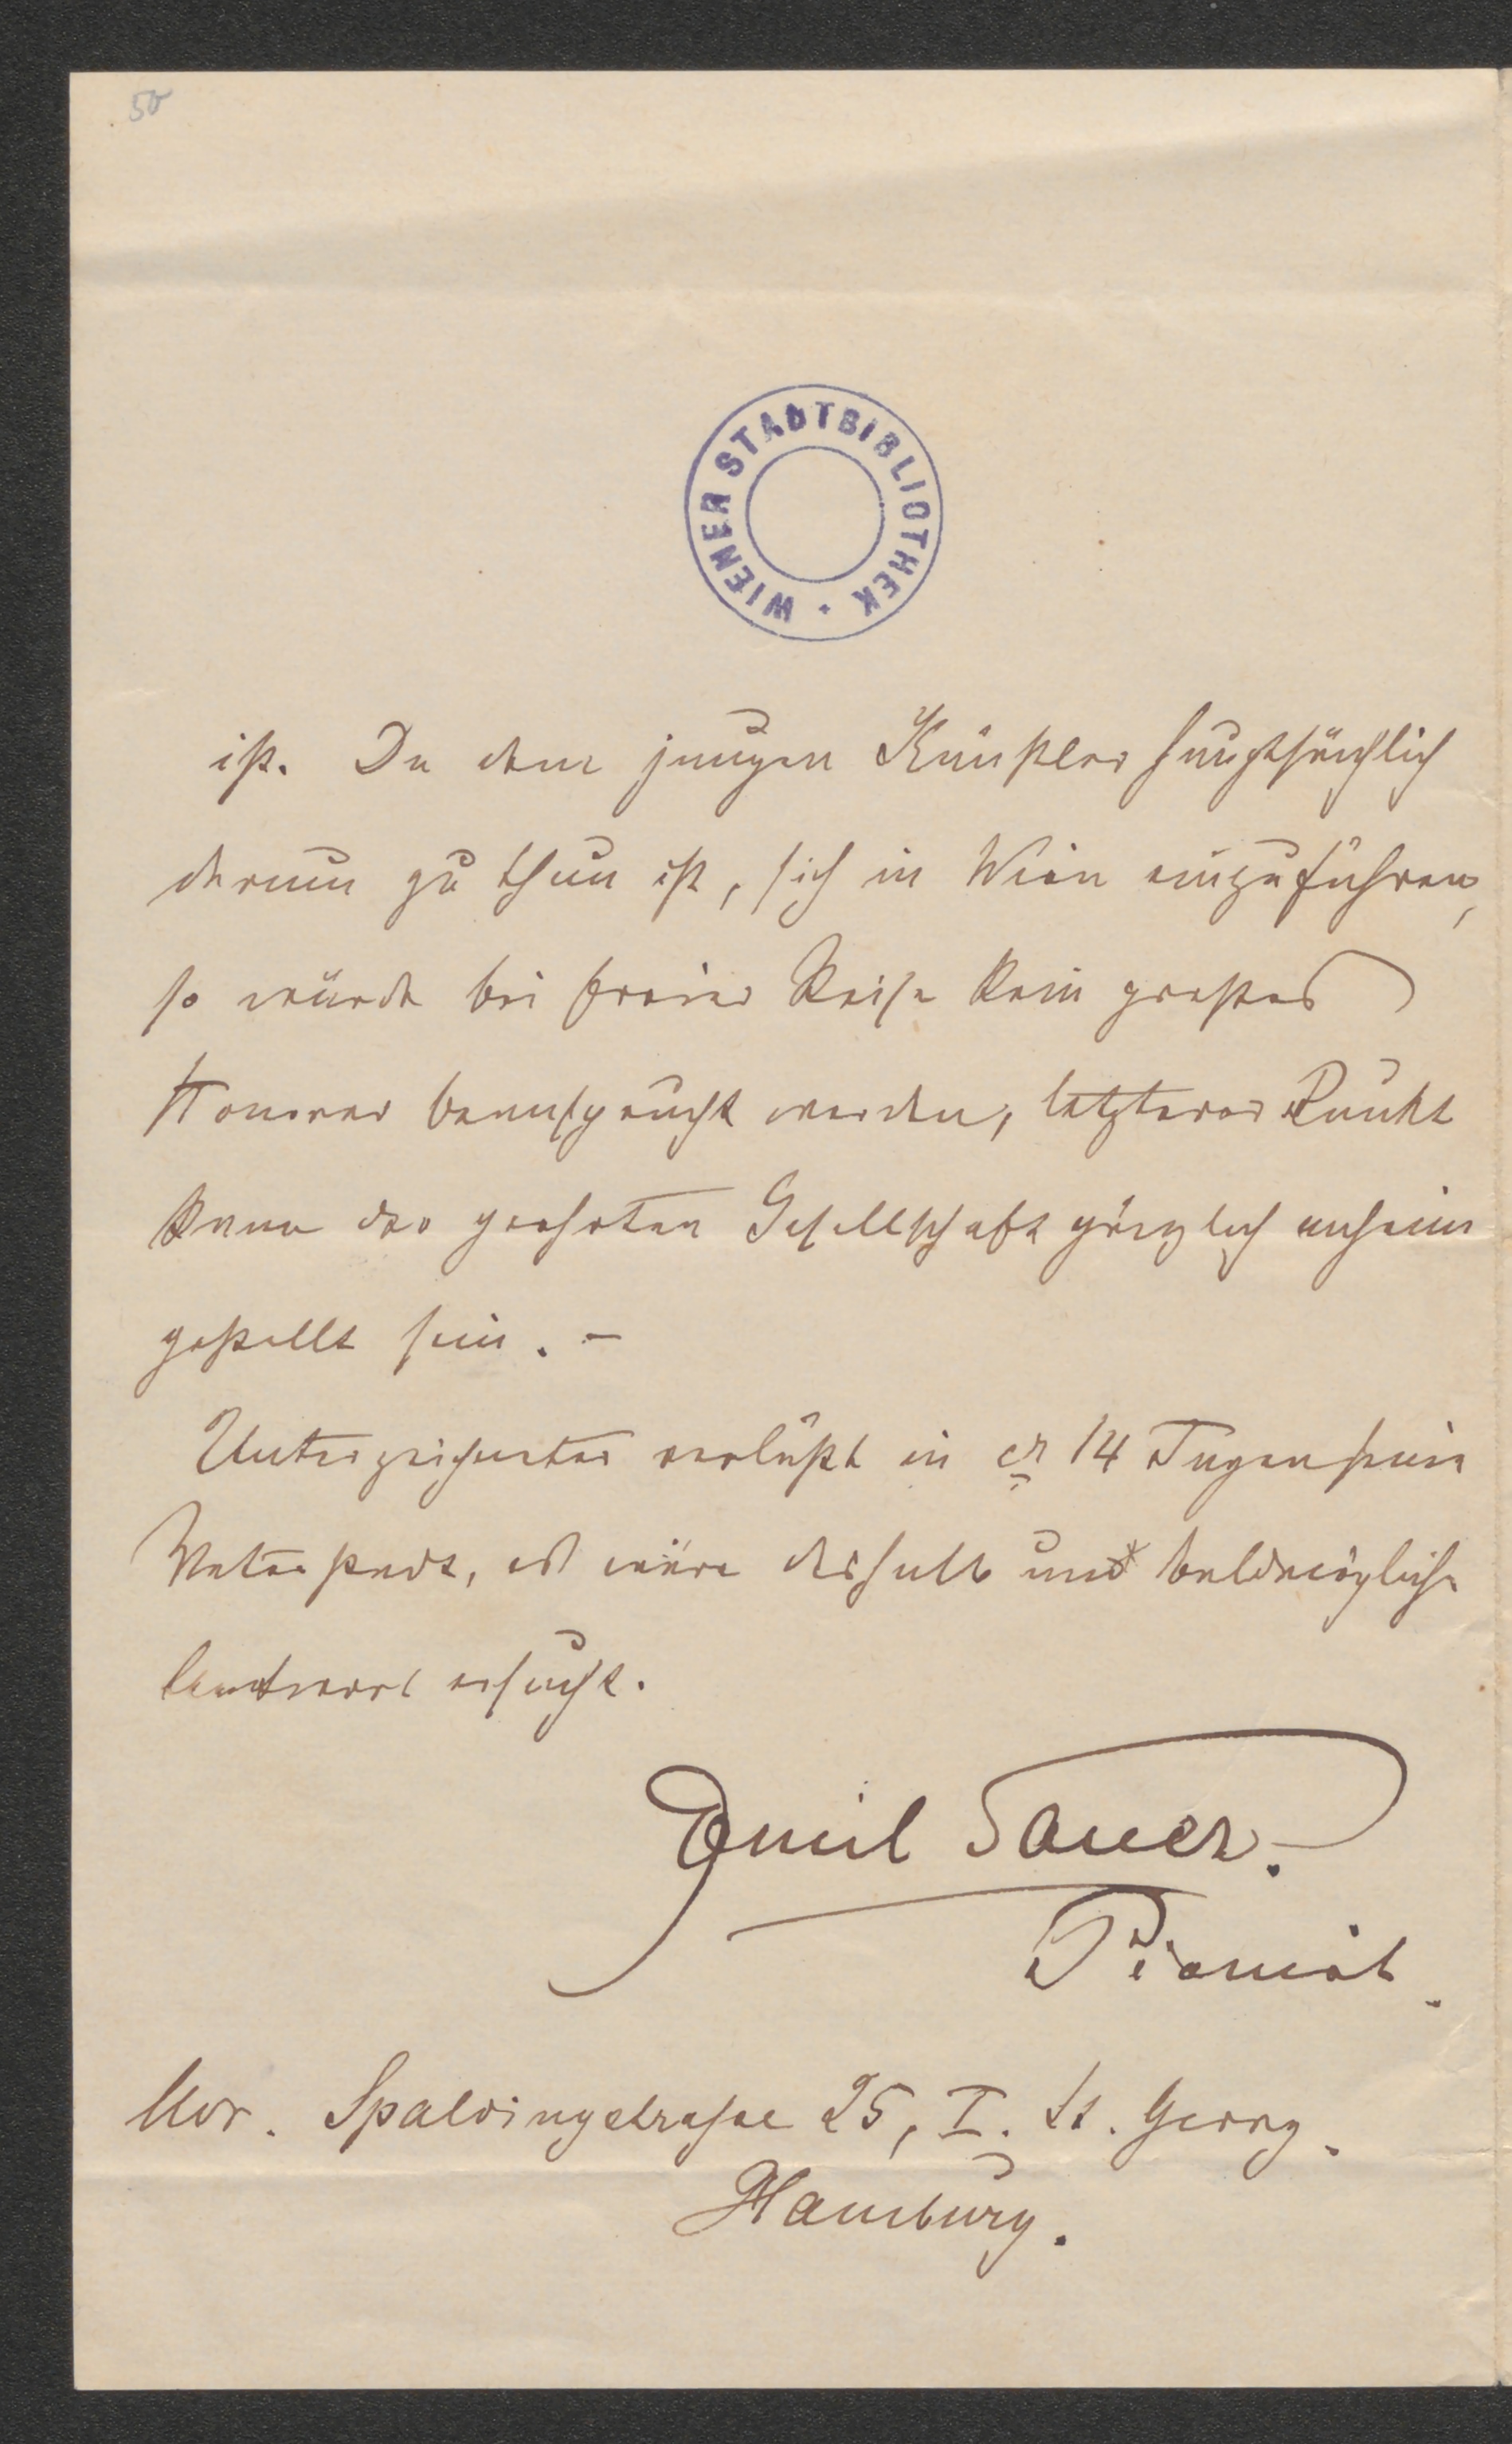 50
WIENER STADTBIBLIOTHEK
ist. Da dem jungen Künstler hauptsächlich
darum zu thun ist, sich in Wien einzuführen,
so würde bei freier Reise kein großes
Honorar beansprucht werden, letzterer Punkt
kann der geehrten Gesellschaft gänzlich anheim
gestellt sein. -
Unterzeichneter verläßt in cr 14 Tagen seine
Vaterstadt, es wäre deshalb um baldmögliche
Antwort ersucht.
Emil Sauer.
Pianist.
Adr. Spaldingstrasse 25, I. St. Georg.
Hamburg.